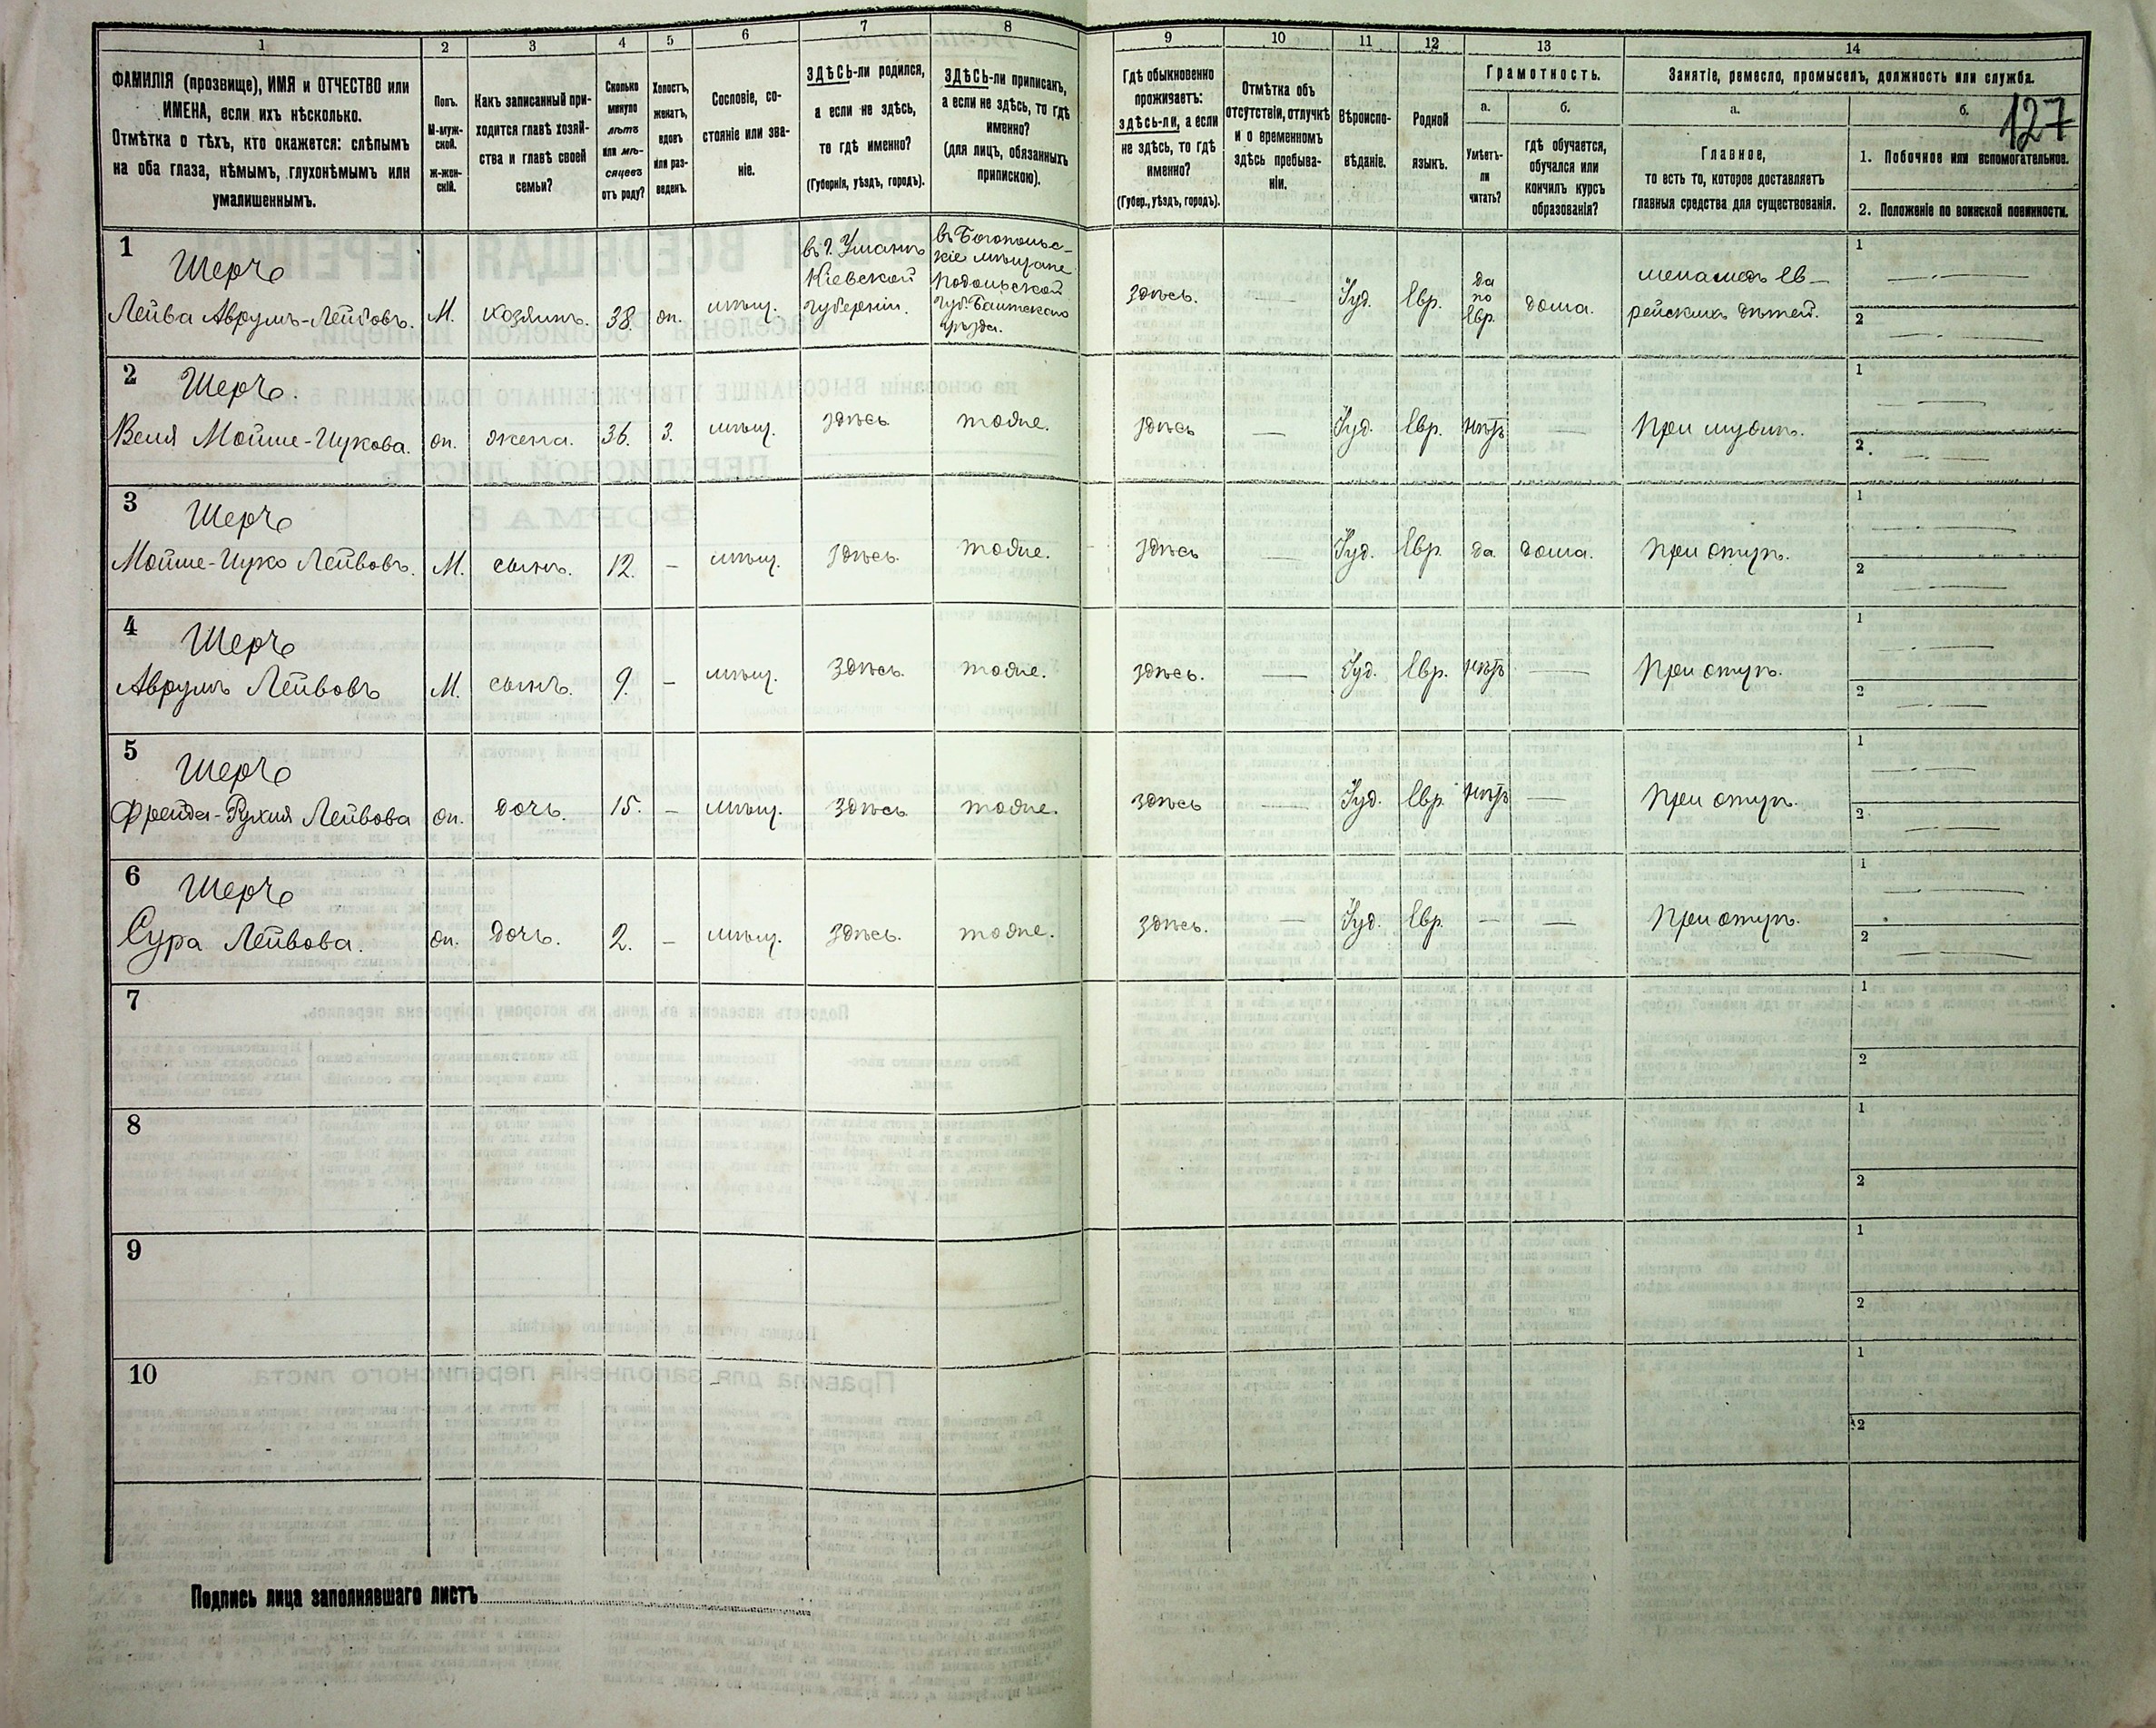 127
1 2 3 4 5 6 7 8 9 10 11 12 13 14
ФАМИЛІЯ (прозвище), ИМЯ и ОТЧЕСТВО или
ИМЕНА, если ихъ нѣсколько.
Отмѣтка о тѣхъ, кто окажется: слѣпымъ
на оба глаза, нѣмымъ, глухонѣмымъ или
умалишеннымъ.
Полъ.
М-муж-
ской.
ж-жен-
скій.
Какъ записанный при-
ходится главѣ хозяй-
ства и главѣ своей
семьи?
Сколько
минуло
лѣтъ
или мѣ-
сяцевъ
отъ роду?
Холостъ,
женатъ,
вдовъ
или раз-
веденъ.
Сословіе, со-
стояніе или зва-
ніе.
ЗДѢСЬ-ли родился,
а если не здѣсь,
то гдѣ именно?
(Губернія, уѣздъ, городъ).
ЗДѢСЬ-ли приписанъ,
а если не здѣсь, то гдѣ
именно?
(для лицъ, обязанныхъ
припискою).
Гдѣ обыкновенно
проживаетъ:
здѣсь-ли, а если
не здѣсь, то гдѣ
именно?
(Губер., уѣздъ, городъ).
Отмѣтка объ
отсутствіи, отлучкѣ
и о временномъ
здѣсь пребыва-
ніи.
Вѣроиспо-
вѣданіе.
Родной
языкъ.
Грамотность.
а.
Умѣетъ-
ли
читать?
б.
гдѣ обучается,
обучался или
кончилъ курсъ
образованія?
Занятіе, ремесло, промыселъ, должность или служба.
а.
Главное,
то есть то, которое доставляетъ
главныя средства для существованія.
б.
1. Побочное или вспомогательное.
2. Положеніе по воинской повинности.
1 Шерч
Лейва Аврумъ-Лейбовъ.
М.
хозяинъ.
38.
жп.
мѣщ.
въ г. Умань
Кіевской
губерніи.
въ Богопольс-
кіе мѣщане
Подольской
губ. Балтскаго
уѣзда.
здѣсь.
—
Іуд.
Евр.
да
по
Евр.
дома.
меламедъ ев-
рейскихъ дѣтей.
1 —
2 —
2 Шерч.
Веля Мойше-Ицкова. жп. жена. 36. З. мѣщ. здѣсь тоже. здѣсь — Іуд. Евр. нѣтъ — При мужѣ.
1 —
2 —
3 Шерч
Мойше-Ицко Лейбовъ. М. сынъ. 12. – мѣщ. здѣсь. тоже. здѣсь — Іуд. Евр. да дома. При отцѣ.
1 —
2 —
4 Шерч
Аврумъ Лейбовъ М. сынъ. 9. – мѣщ. здѣсь. тоже. здѣсь. — Іуд. Евр. нѣтъ — При отцѣ.
1 —
2 —
5 Шерч
Фрейда-Рухля Лейбова жп. дочь. 15. – мѣщ. здѣсь тоже. здѣсь — Іуд. Евр. нѣтъ — При отцѣ.
1 —
2 —
6 Шерч
Сура Лейбова. жп. дочь. 2. – мѣщ. здѣсь. тоже. здѣсь. — Іуд. Евр. — — При отцѣ.
1 —
2 —
7
1
2
8
1
2
9
1
2
10
1
2
Подпись лица заполнявшаго листъ